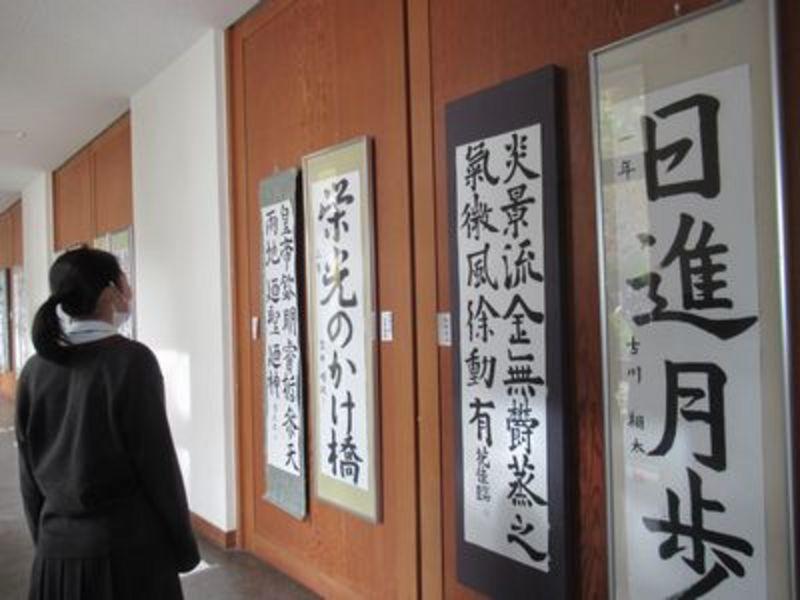 日進月歩
一年
古川 翔太
炎景流金無欝蒸之
氣微風徐動有
栄光のかけ橋
天
雨地廼聖廼神